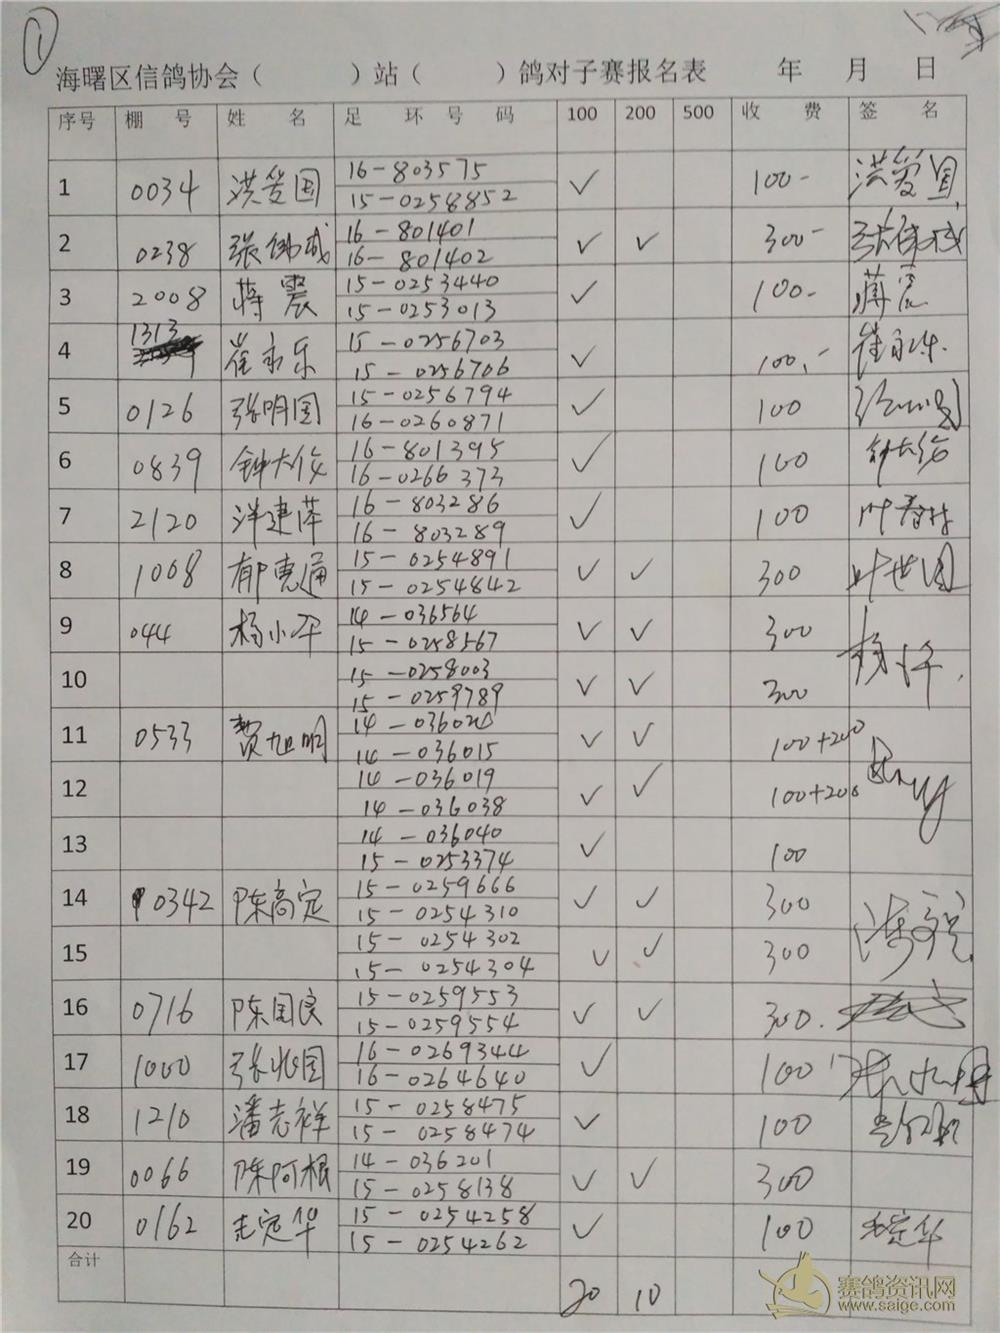 ①
海曙区信鸽协会（ ）站（ ）鸽对子赛报名表 年 月 日
序号 棚 号 姓 名 足 环 号 码 100 200 500 收 费 签 名
1 0034 洪爱国 16-803575 ✓ 100- 洪爱国
15-0258852
2 0238 张伟成 16-801401 ✓ ✓ 300-
16-801402
3 2008 蒋震 15-0253440 ✓ 100- 蒋震
15-0253013
4 1313 崔永乐 15-0256703 ✓ 100.- 崔永乐
15-0256706
5 0126 张明国 15-0256794 ✓ 100
16-0260871
6 0839 钟大俊 16-801395 ✓ 100
16-0266373
7 2120 洋建萍 16-803286 ✓ 100
16-803289
8 1008 郁惠通 15-0254891 ✓ ✓ 300 叶世国
15-0254842
9 044 杨小平 14-036564 ✓ ✓ 300
15-0258567
10 15-0258003 ✓ ✓ 300
15-0259789
11 0533 贺旭明 14-036020 ✓ ✓ 100+200
14-036015
12 14-036019 ✓ ✓ 100+200
14-036038
13 14-036040 ✓ 100
15-0253374
14 0342 陈高定 15-0259666 ✓ ✓ 300
15-0254310
15 15-0254302 ✓ ✓ 300
15-0254304
16 0716 陈国良 15-0259553 ✓ ✓ 300.
15-0259554
17 1000 张兆国 16-0269344 ✓ 100
16-0264640
18 1210 潘志祥 15-0258475 ✓ 100
15-0258474
19 0066 陈阿根 14-036201 ✓ ✓ 300
15-0258138
20 0162 定华 15-0254258 ✓ 100 定华
15-0254262
合计 20 10
赛鸽资讯网
www.saige.com